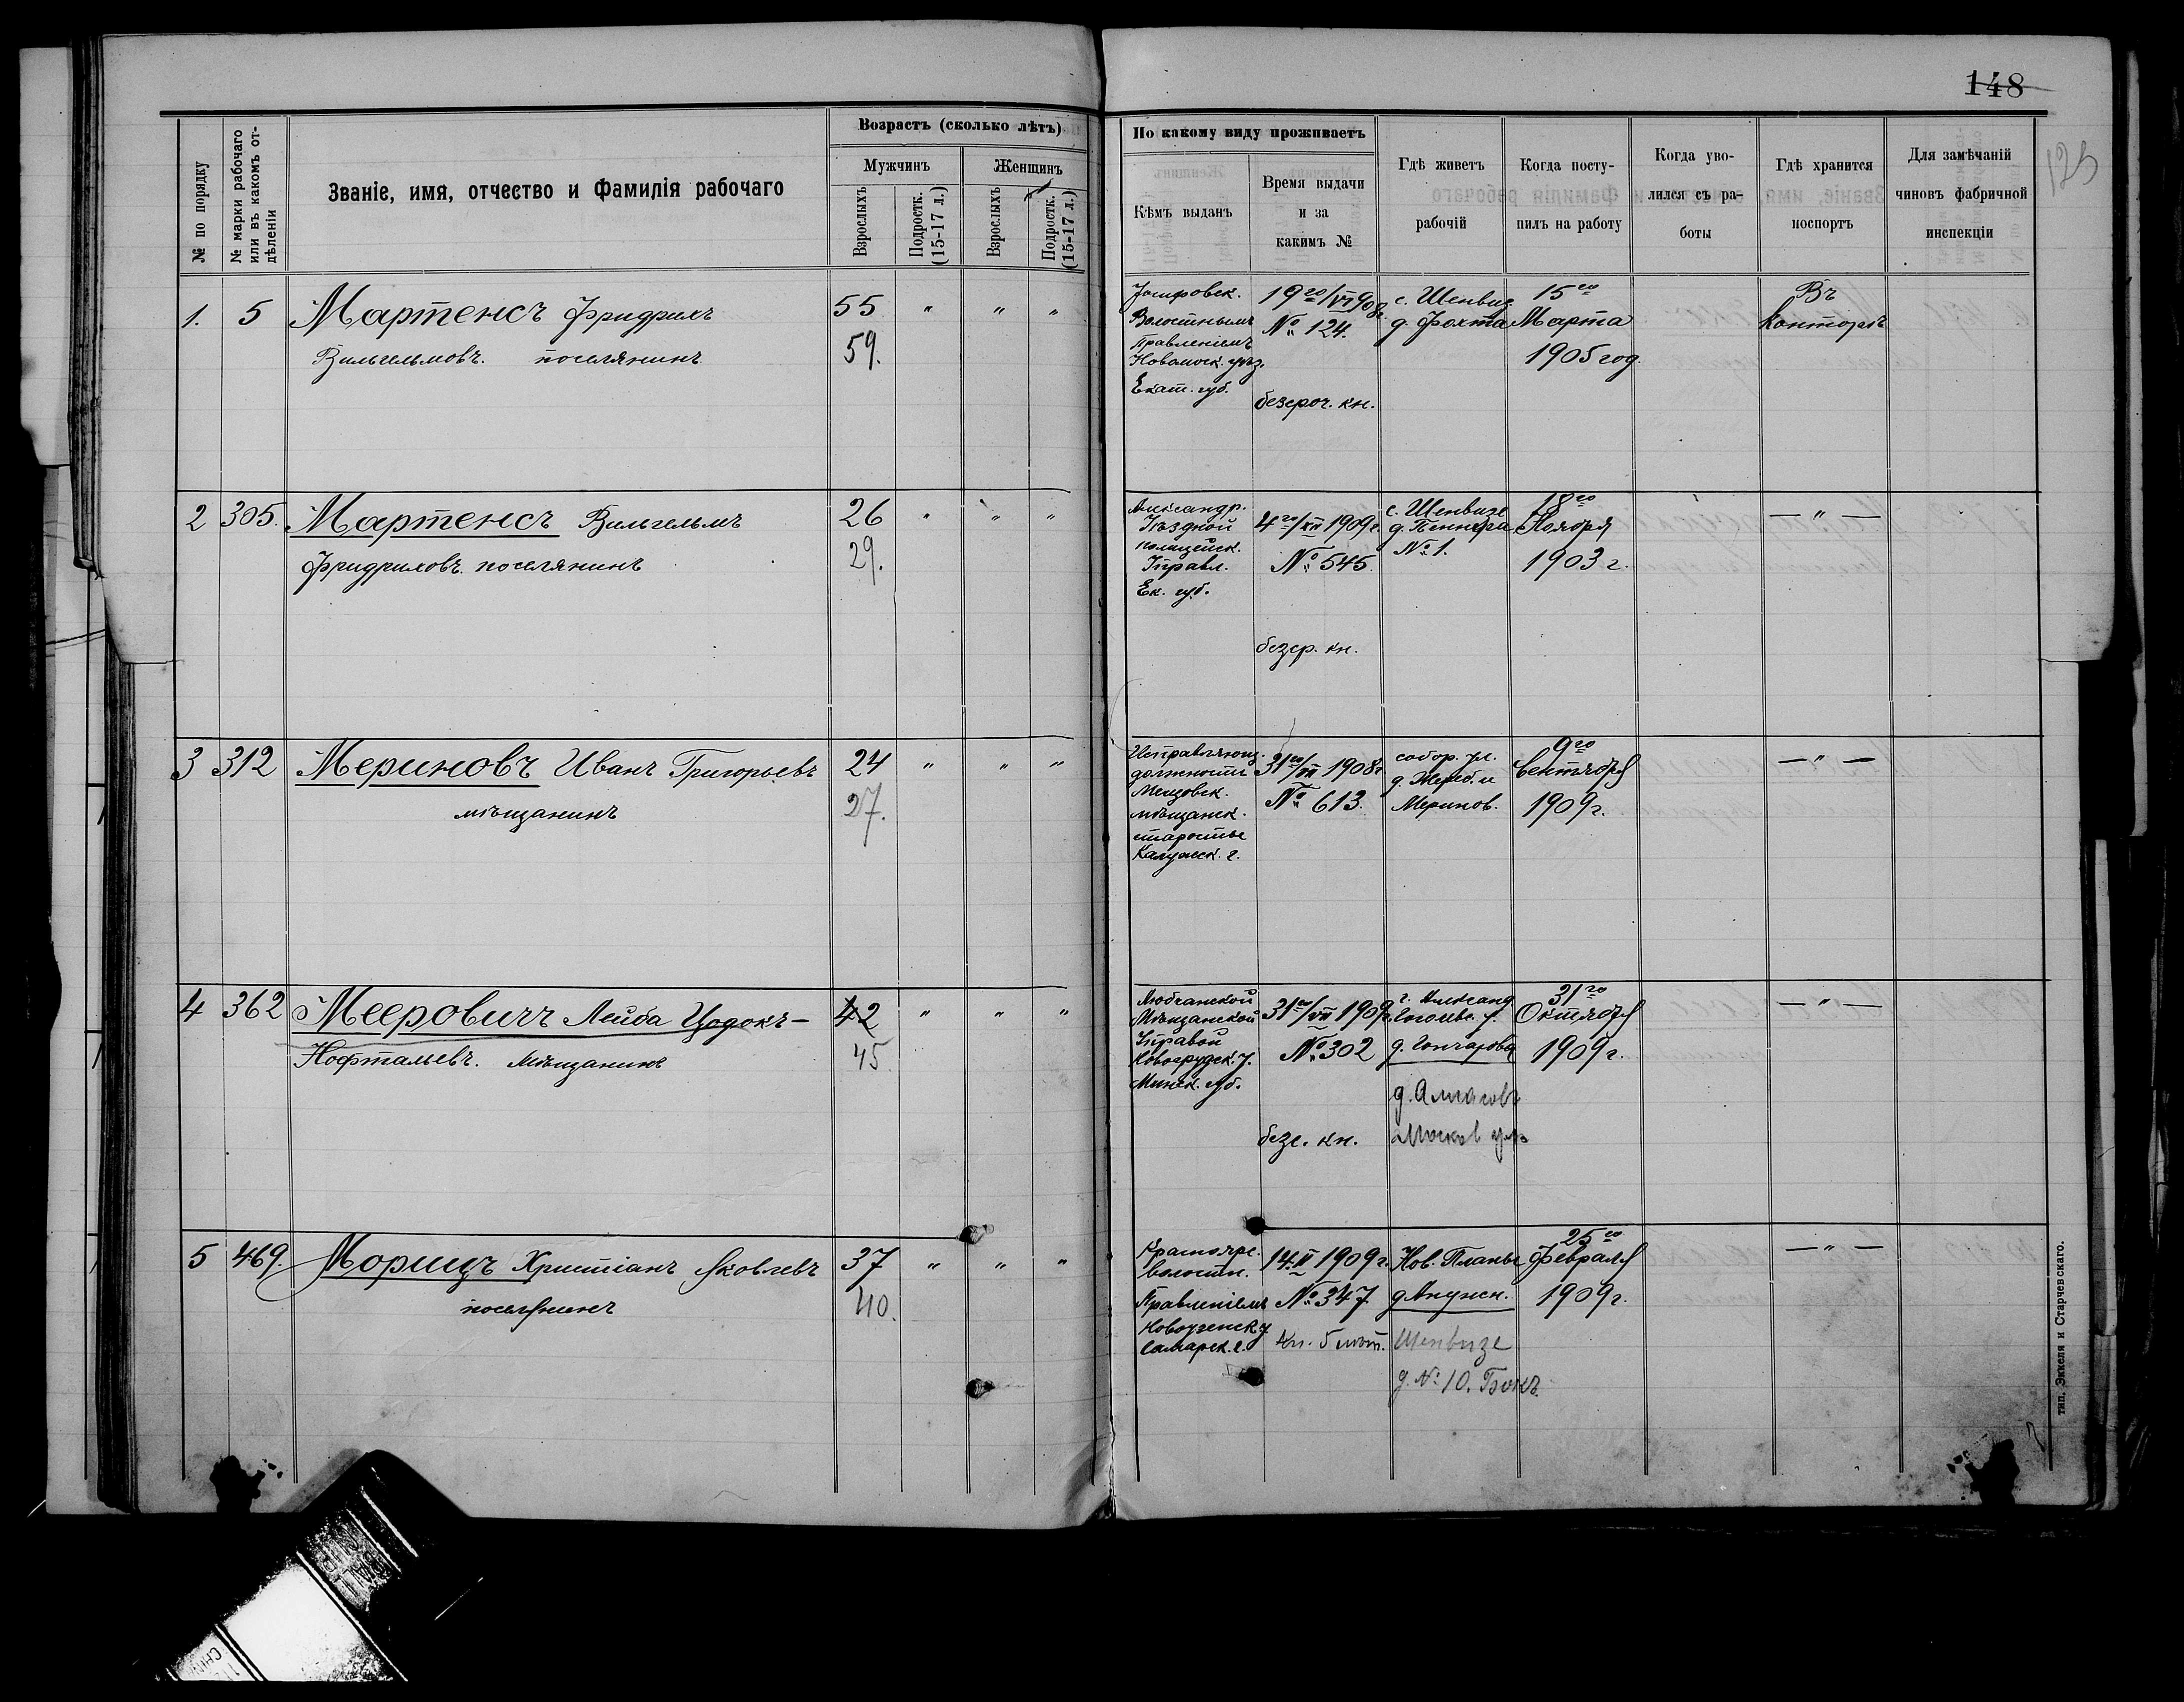 148
125
№ по порядку
№ марки рабочаго или въ какомъ отдѣленіи
Званіе, имя, отчество и фамилія рабочаго
Возрастъ (сколько лѣтъ)
Мужчинъ
Женщинъ
Взрослыхъ
Подростк. (15-17 л.)
Взрослыхъ
Подростк. (15-17 л.)
По какому виду проживаетъ
Кѣмъ выданъ
Время выдачи и за какимъ №
Гдѣ живетъ рабочій
Когда поступилъ на работу
Когда уволился съ работы
Гдѣ хранится поспортъ
Для замѣчаній чиновъ фабричной инспекціи
1. 5 Мартенсъ Фридрихъ 55 " " "
Вильгельмовъ. поселянинъ 59.
Волостнымъ
Правленіемъ
Новомоск. уѣз.
Екат. губ.
19го/VI 908г.
№ 124.
безсроч. кн.
с. Шенвизе
д. Фохта
15го
Марта
1905 год.
Въ
Конторѣ
2 305. Мартенсъ Вильгельмъ 26 " " "
Фридриховъ поселянинъ 29.
Александр.
Уѣздной
полицейск.
Управл.
Ек. губ.
4го/XII 1909г.
№ 545.
безср. кн.
с. Шенвизе
д. Пеннера
№ 1.
18го
Ноября
1903 г.
— " —
3 312 Мериновъ Иванъ Григорьевъ 24 " " "
мѣщанинъ 27.
Исправляющ.
должность
Мещовск.
мѣщанск.
старосты
Калужск. г.
31го/VII 1908г
№ 613.
собор. ул.
д. Жереб. и
Меринов.
9го
Сентября
1909 г.
— " —
4 362 Мееровичъ Лейба Цодокъ- 42 " " "
Нофтальевъ. мѣщанинъ 45.
Любчанской
Мѣщанской
Управой
Новогрудск. у.
Минск. губ.
31го/VII 1909г.
№ 302
безс. кн.
г. Александ
д. Гончарова
д. Алмазовъ
Москов ул.
31го
Октября
1909 г.
— " —
5 469. Морицъ Христіанъ Яковлевъ 37 " " "
поселянинъ 40.
Краснояр.
волостн.
Правленіемъ
Новоузенск. у.
Самарск. г.
14.II 1909 г.
№ 347
кн. 5 лѣт.
Нов. Планы
Шенвизе
д. № 10. Бокъ
25го
Февраля
1909 г.
— " —
тип. Эккеля и Старчевскаго.